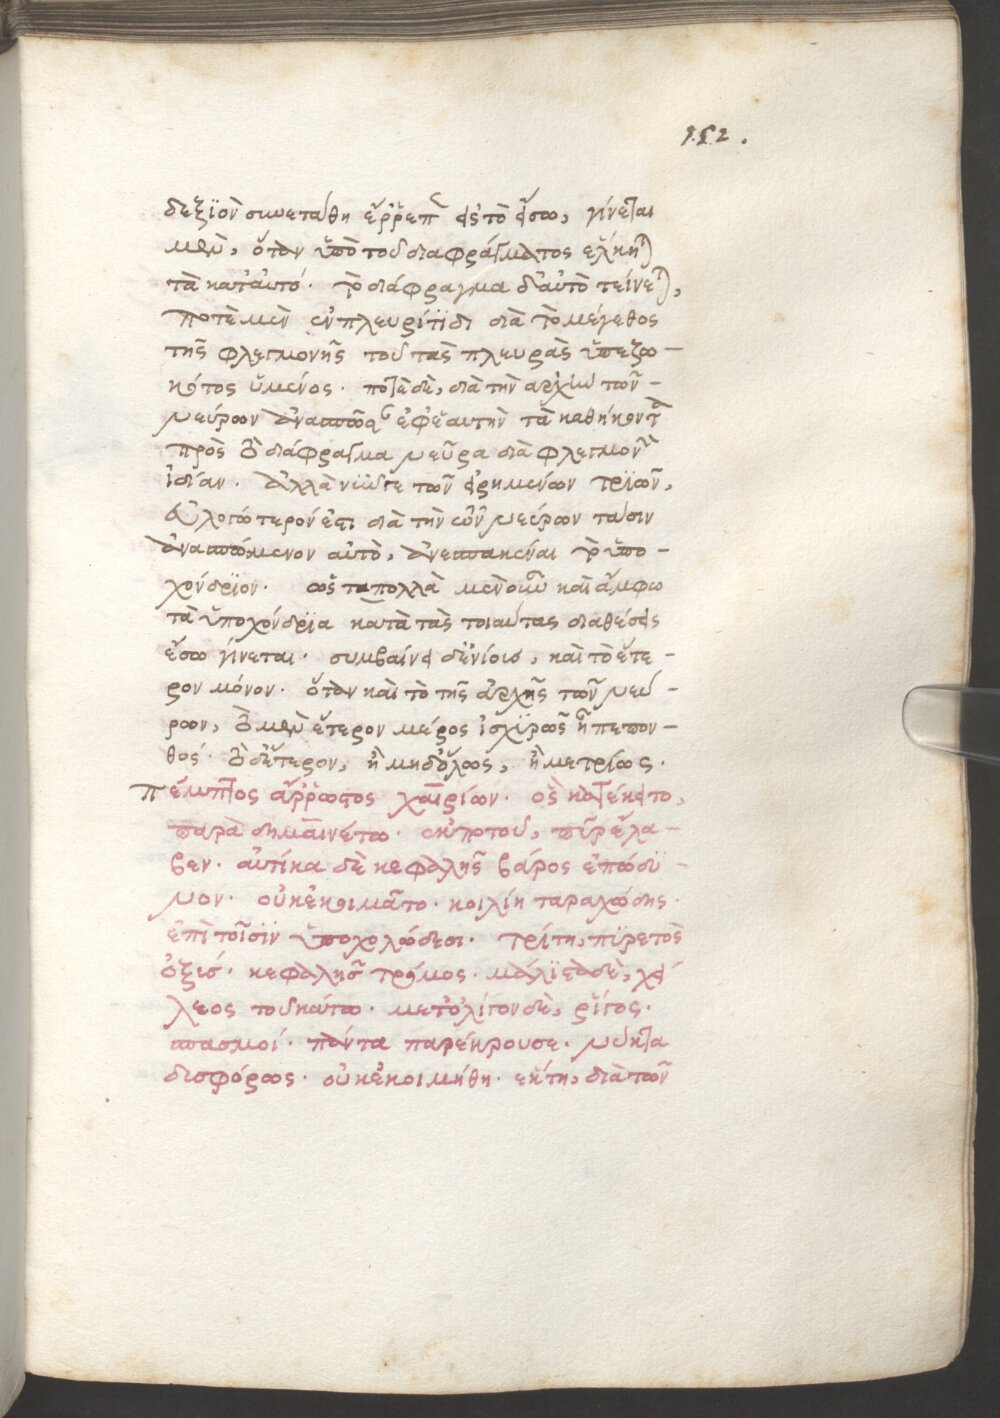 152.
δεξϊὸν συνετάθη ἔρρεπε εἰς τὸ εἴσω, γίνεται
μὲν, ὅταν ὑπὸ τοῦ διαφράγματος ἕλκηται
τὰ κατ' αὐτό· τὸ διάφραγμα δ' αὐτὸ τείνεται,
ποτὲ μὲν ἐν πλευρίτϊδι διὰ τὸ μέγεθος
τῆς φλεγμονῆς τοῦ τὰς πλευρὰς ὑπεζω-
κότος ὑμένος· ποτὲ δὲ, διὰ τὴν ἀρχὴν τῶν-
νεύρων ἀνασπῶσαν ἐφ' ἑαυτὴν τὰ καθήκοντα
πρὸς τὸ διάφραγμα νεῦρα διὰ φλεγμονὴν
ἰδίαν· ἀλλὰ νῦν γε τῶν εἰρημένων τριῶν,
εὐλογώτερόν ἐστι διὰ τὴν τῶν νεύρων τάσιν
ἀνασπώμενον αὐτὸ, ἀνεσπακέναι τὸ ὑπο-
χόνδριον· ὡς τὰ πολλὰ μὲν οὖν καὶ ἄμφω
τὰ ὑποχόνδρϊα κατὰ τὰς τοιαύτας διαθέσεις
εἴσω γίνεται· συμβαίνει δ' ἐνίοις, καὶ τὸ ἕτε-
ρον μόνον· ὅταν καὶ τὸ τῆς ἀρχῆς τῶν νεύ-
ρων, τὸ μὲν ἕτερον μέρος ἰσχϋρῶς ᾖ πεπον-
θός· τὸ δ' ἕτερον, ἢ μηδ' ὅλως, ἢ μετρίως·
πέμπτος ἄρρωστος χαιρίων· ὃς κατέκειτο,
παρὰ δημαινέτω· ἐκ ποτοῦ, πῦρ ἔλα-
βεν· αὐτίκα δὲ κεφαλῆς βάρος ἐπώδϋ-
νον· οὐκ ἐκοιμᾶτο· κοιλίη ταραχώδης·
ἐπὶ τοῖσϊν ὑποχολώδεσι· τρίτη, πϋρετὸς
ὀξύς· κεφαλῆς τρόμος· μάλϊστα δὲ, χεί
λεος τοῦ κάτω· μετ' ὀλίγον δὲ, ῥῖγος·
σπασμοί· πάντα παρέκρουσε· νύκτα
δυσφόρως· οὐκ ἐκοιμήθη· ἕκτη, διὰ τῶν